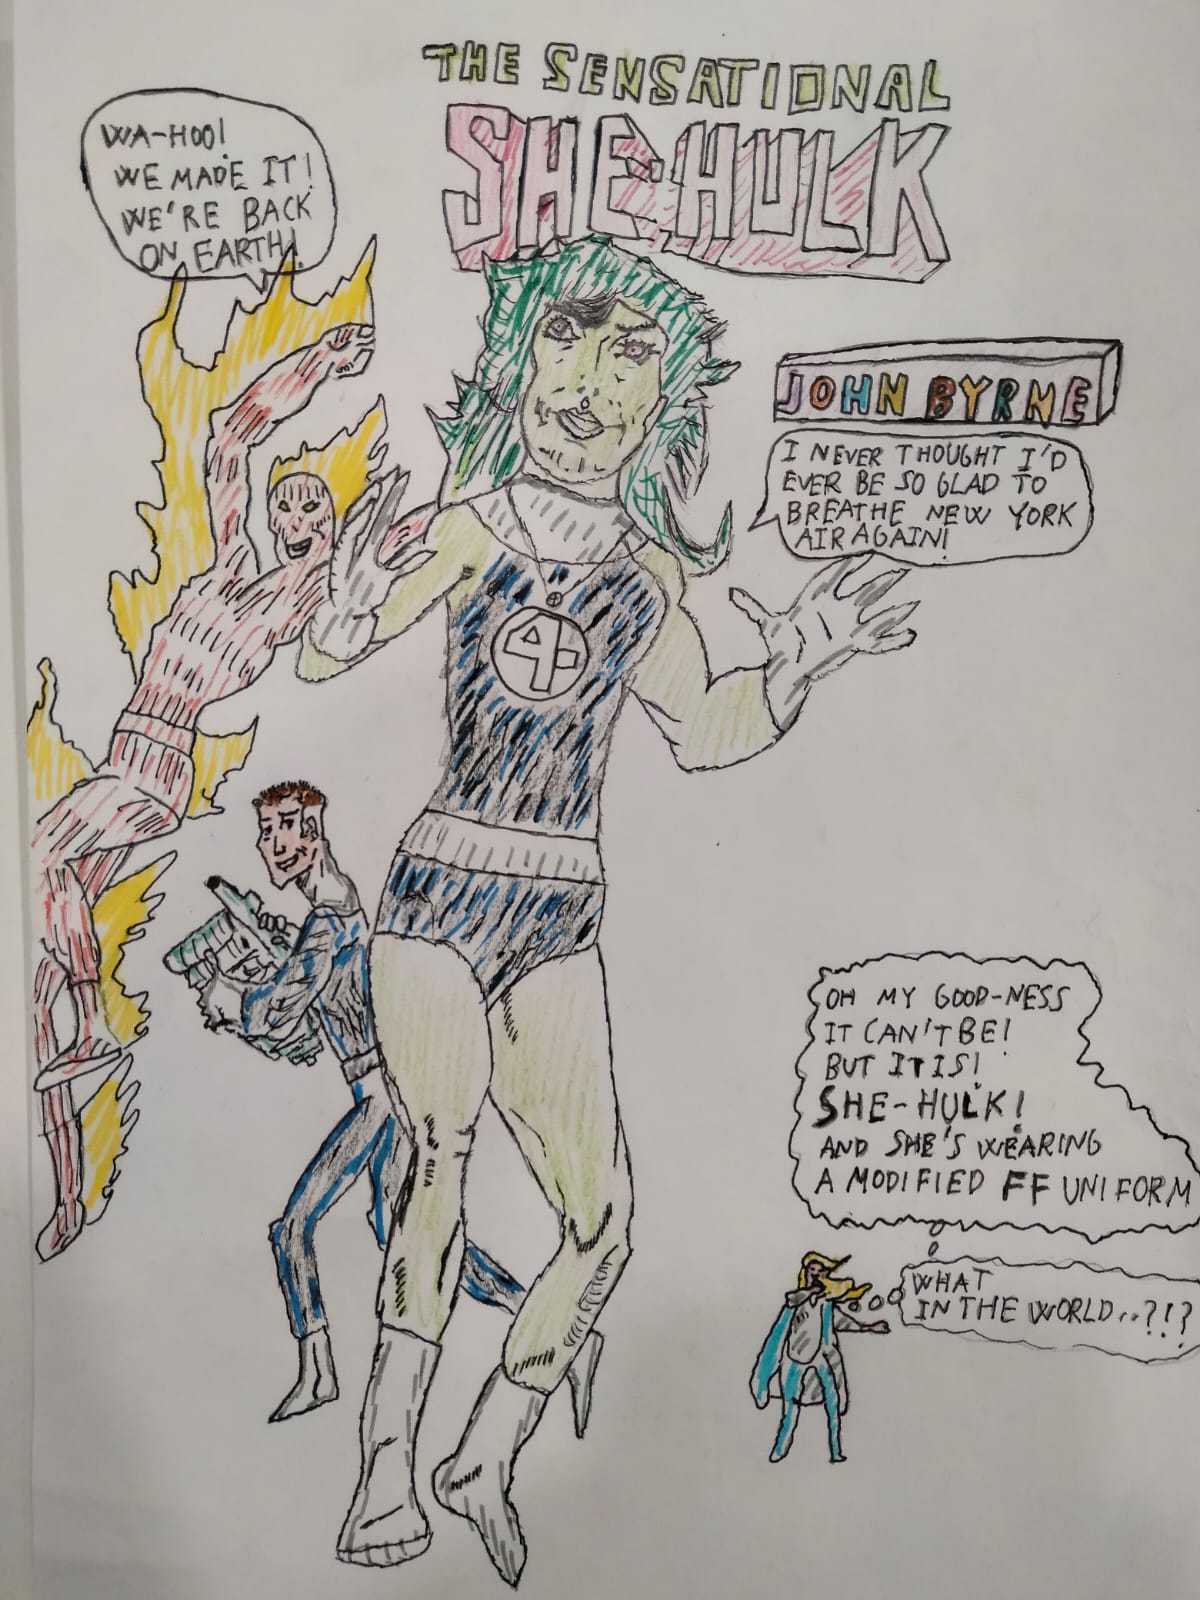 THE SENSATIONAL
SHE-HULK
WA-HOO!
WE MADE IT!
WE'RE BACK
ON EARTH!
JOHN BYRNE
I NEVER THOUGHT I'D
EVER BE SO GLAD TO
BREATHE NEW YORK
AIR AGAIN!
4
OH MY GOOD-NESS
IT CAN'T BE!
BUT IT IS!
SHE-HULK!
AND SHE'S WEARING
A MODIFIED FF UNIFORM
WHAT
IN THE WORLD..?!?